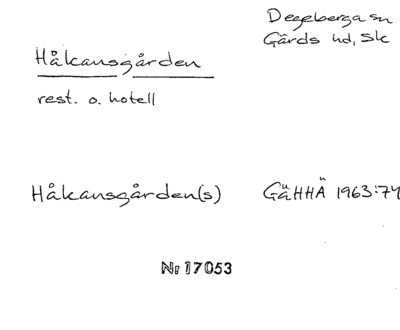 Degeberga sn
Gärds hd, Sk
Håkansgården
rest. o. hotell
Håkansgården(s) GäHHÄ 1963:74
Nr 17053